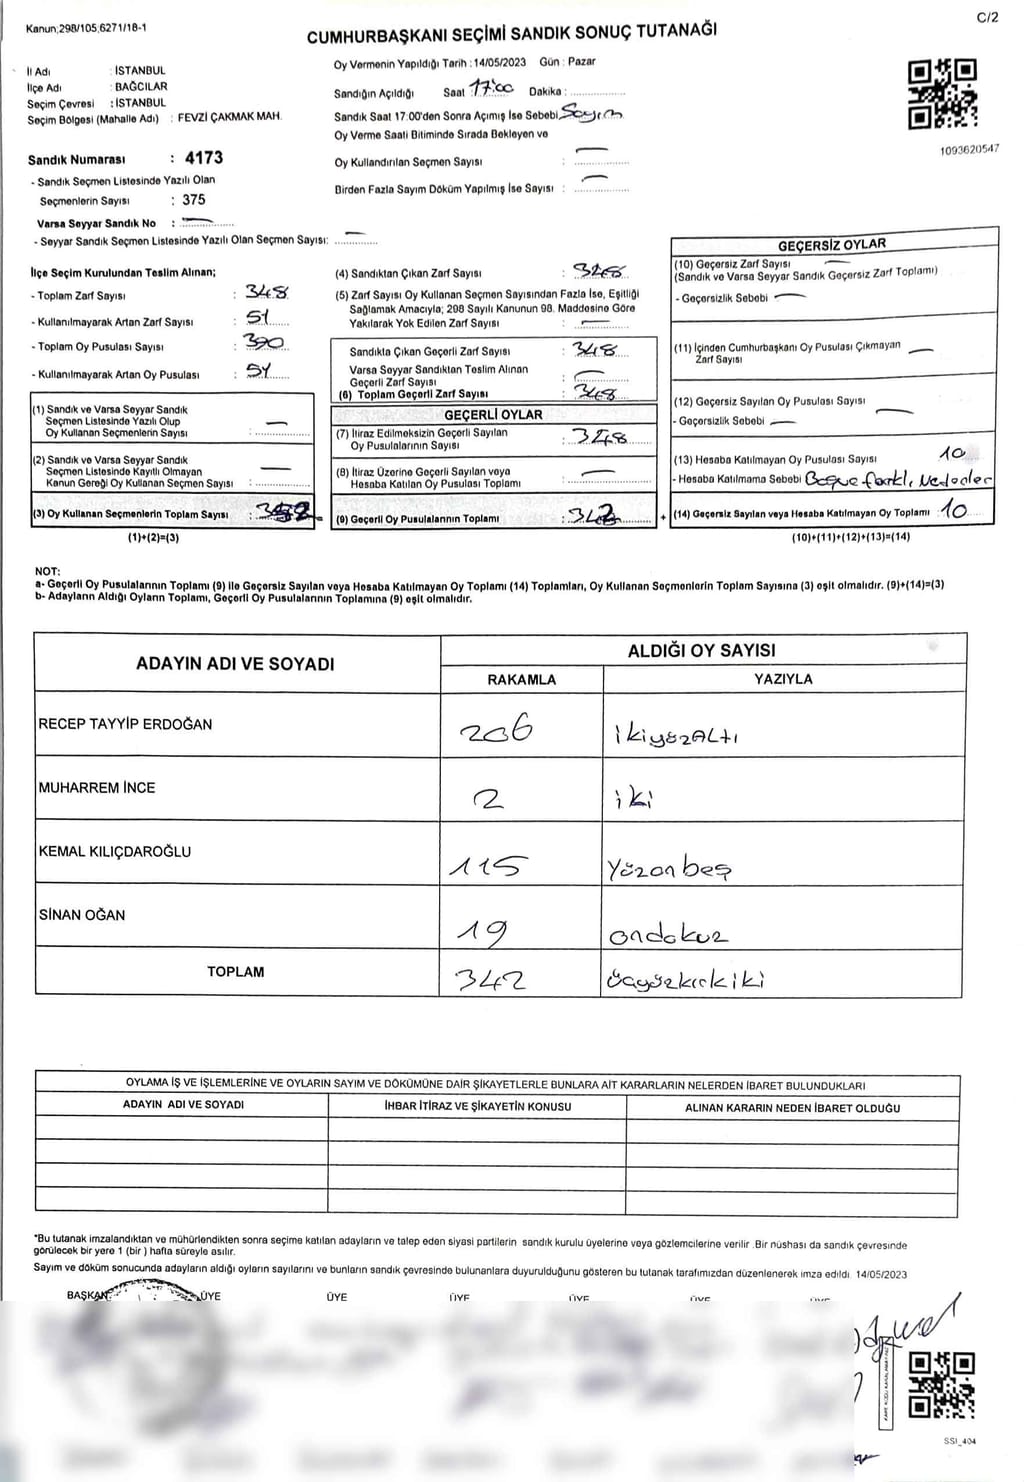 Kanun;298/105;6271/18-1
C/2
CUMHURBAŞKANI SEÇİMİ SANDIK SONUÇ TUTANAĞI
İl Adı : İSTANBUL
İlçe Adı : BAĞCILAR
Seçim Çevresi : İSTANBUL
Seçim Bölgesi (Mahalle Adı) : FEVZİ ÇAKMAK MAH.
Sandık Numarası : 4173
- Sandık Seçmen Listesinde Yazılı Olan
Seçmenlerin Sayısı : 375
Varsa Seyyar Sandık No :
- Seyyar Sandık Seçmen Listesinde Yazılı Olan Seçmen Sayısı:
Oy Vermenin Yapıldığı Tarih : 14/05/2023 Gün : Pazar
Sandığın Açıldığı Saat 17:00 Dakika :
Sandık Saat 17:00'den Sonra Açımış İse Sebebi Sayım
Oy Verme Saati Bitiminde Sırada Bekleyen ve
Oy Kullandırılan Seçmen Sayısı :
Birden Fazla Sayım Döküm Yapılmış İse Sayısı :
1093620547
İlçe Seçim Kurulundan Teslim Alınan;
- Toplam Zarf Sayısı : 348
- Kullanılmayarak Artan Zarf Sayısı : 51
- Toplam Oy Pusulası Sayısı : 390
- Kullanılmayarak Artan Oy Pusulası :
(1) Sandık ve Varsa Seyyar Sandık
Seçmen Listesinde Yazılı Olup
Oy Kullanan Seçmenlerin Sayısı :
(2) Sandık ve Varsa Seyyar Sandık
Seçmen Listesinde Kayıtlı Olmayan
Kanun Gereği Oy Kullanan Seçmen Sayısı :
(3) Oy Kullanan Seçmenlerin Toplam Sayısı :
(1)+(2)=(3)
(4) Sandıktan Çıkan Zarf Sayısı : 348
(5) Zarf Sayısı Oy Kullanan Seçmen Sayısından Fazla İse, Eşitliği
Sağlamak Amacıyla; 298 Sayılı Kanunun 98. Maddesine Göre
Yakılarak Yok Edilen Zarf Sayısı :
Sandıkta Çıkan Geçerli Zarf Sayısı : 348
Varsa Seyyar Sandıktan Teslim Alınan
Geçerli Zarf Sayısı :
(6) Toplam Geçerli Zarf Sayısı : 348
GEÇERLİ OYLAR
(7) İtiraz Edilmeksizin Geçerli Sayılan
Oy Pusulalarının Sayısı : 348
(8) İtiraz Üzerine Geçerli Sayılan veya
Hesaba Katılan Oy Pusulası Toplamı :
(9) Geçerli Oy Pusulalarının Toplamı : 342
GEÇERSİZ OYLAR
(10) Geçersiz Zarf Sayısı
(Sandık ve Varsa Seyyar Sandık Geçersiz Zarf Toplamı)
- Geçersizlik Sebebi
(11) İçinden Cumhurbaşkanı Oy Pusulası Çıkmayan
Zarf Sayısı
(12) Geçersiz Sayılan Oy Pusulası Sayısı
- Geçersizlik Sebebi
(13) Hesaba Katılmayan Oy Pusulası Sayısı 10
- Hesaba Katılmama Sebebi farklı Nedenler
+ (14) Geçersiz Sayılan veya Hesaba Katılmayan Oy Toplamı : 10
(10)+(11)+(12)+(13)=(14)
NOT:
a- Geçerli Oy Pusulalarının Toplamı (9) ile Geçersiz Sayılan veya Hesaba Katılmayan Oy Toplamı (14) Toplamları, Oy Kullanan Seçmenlerin Toplam Sayısına (3) eşit olmalıdır. (9)+(14)=(3)
b- Adayların Aldığı Oyların Toplamı, Geçerli Oy Pusulalarının Toplamına (9) eşit olmalıdır.
ADAYIN ADI VE SOYADI
ALDIĞI OY SAYISI
RAKAMLA YAZIYLA
RECEP TAYYİP ERDOĞAN 206 ikiyüzALtı
MUHARREM İNCE 2 iki
KEMAL KILIÇDAROĞLU 115 Yüzonbeş
SİNAN OĞAN 19 ondokuz
TOPLAM 342 üçyüzkırkiki
OYLAMA İŞ VE İŞLEMLERİNE VE OYLARIN SAYIM VE DÖKÜMÜNE DAİR ŞİKAYETLERLE BUNLARA AİT KARARLARIN NELERDEN İBARET BULUNDUKLARI
ADAYIN ADI VE SOYADI İHBAR İTİRAZ VE ŞİKAYETİN KONUSU ALINAN KARARIN NEDEN İBARET OLDUĞU
*Bu tutanak imzalandıktan ve mühürlendikten sonra seçime katılan adayların ve talep eden siyasi partilerin sandık kurulu üyelerine veya gözlemcilerine verilir .Bir nüshası da sandık çevresinde
görülecek bir yere 1 (bir ) hafta süreyle asılır.
Sayım ve döküm sonucunda adayların aldığı oyların sayılarını ve bunların sandık çevresinde bulunanlara duyurulduğunu gösteren bu tutanak tarafımızdan düzenlenerek imza edildi. 14/05/2023
BAŞKAN ÜYE ÜYE ÜYE ÜYE ÜYE
SSI_404